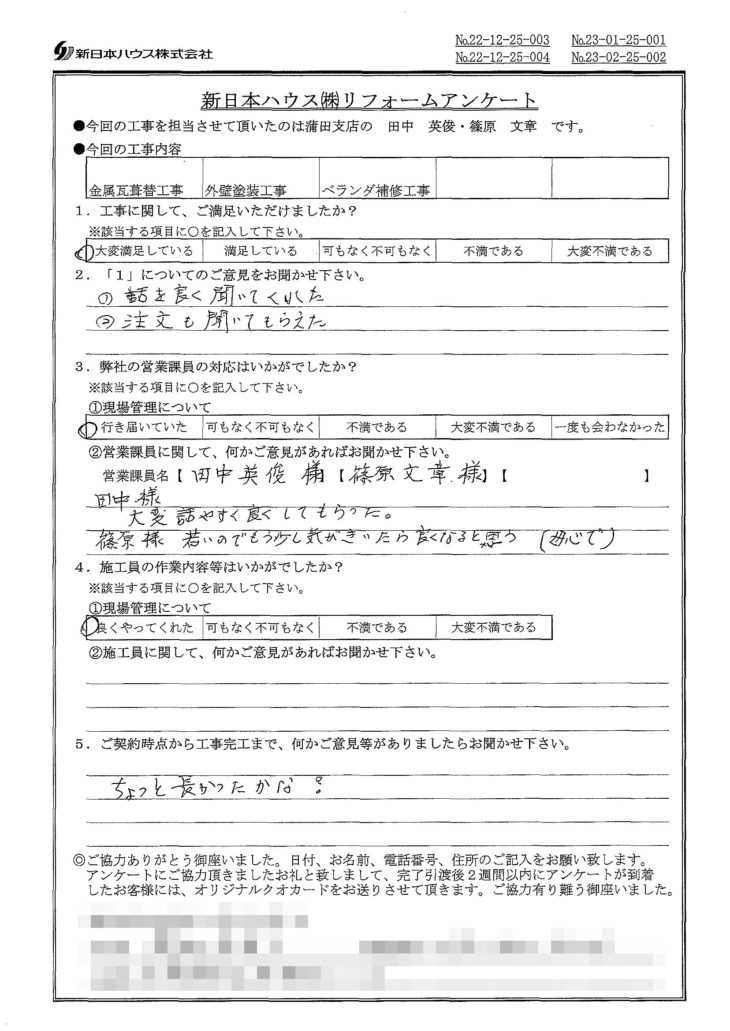 新日本ハウス株式会社
№22-12-25-003 №23-01-25-001
№22-12-25-004 №23-02-25-002
新日本ハウス㈱リフォームアンケート
●今回の工事を担当させて頂いたのは蒲田支店の 田中 英俊・篠原 文章 です。
●今回の工事内容
金属瓦葺替工事 外壁塗装工事 ベランダ補修工事
1．工事に関して、ご満足いただけましたか？
※該当する項目に○を記入して下さい。
大変満足している 満足している 可もなく不可もなく 不満である 大変不満である
2．「1」についてのご意見をお聞かせ下さい。
① 話を良く聞いてくれた
② 注文も聞いてもらえた
3．弊社の営業課員の対応はいかがでしたか？
※該当する項目に○を記入して下さい。
①現場管理について
行き届いていた 可もなく不可もなく 不満である 大変不満である 一度も会わなかった
②営業課員に関して、何かご意見があればお聞かせ下さい。
営業課員名【 田中英俊 様 】【 篠原文章 様 】【 】
田中様
大変話やすく良くしてもらった。
篠原様 若いのでもう少し気がきいたら良くなると思う (母心で)
4．施工員の作業内容等はいかがでしたか？
※該当する項目に○を記入して下さい。
①現場管理について
良くやってくれた 可もなく不可もなく 不満である 大変不満である
②施工員に関して、何かご意見があればお聞かせ下さい。
5．ご契約時点から工事完工まで、何かご意見等がありましたらお聞かせ下さい。
ちょっと長かったかな？
◎ご協力ありがとう御座いました。日付、お名前、電話番号、住所のご記入をお願い致します。
アンケートにご協力頂きましたお礼と致しまして、完了引渡後２週間以内にアンケートが到着
したお客様には、オリジナルクオカードをお送りさせて頂きます。ご協力有り難う御座いました。